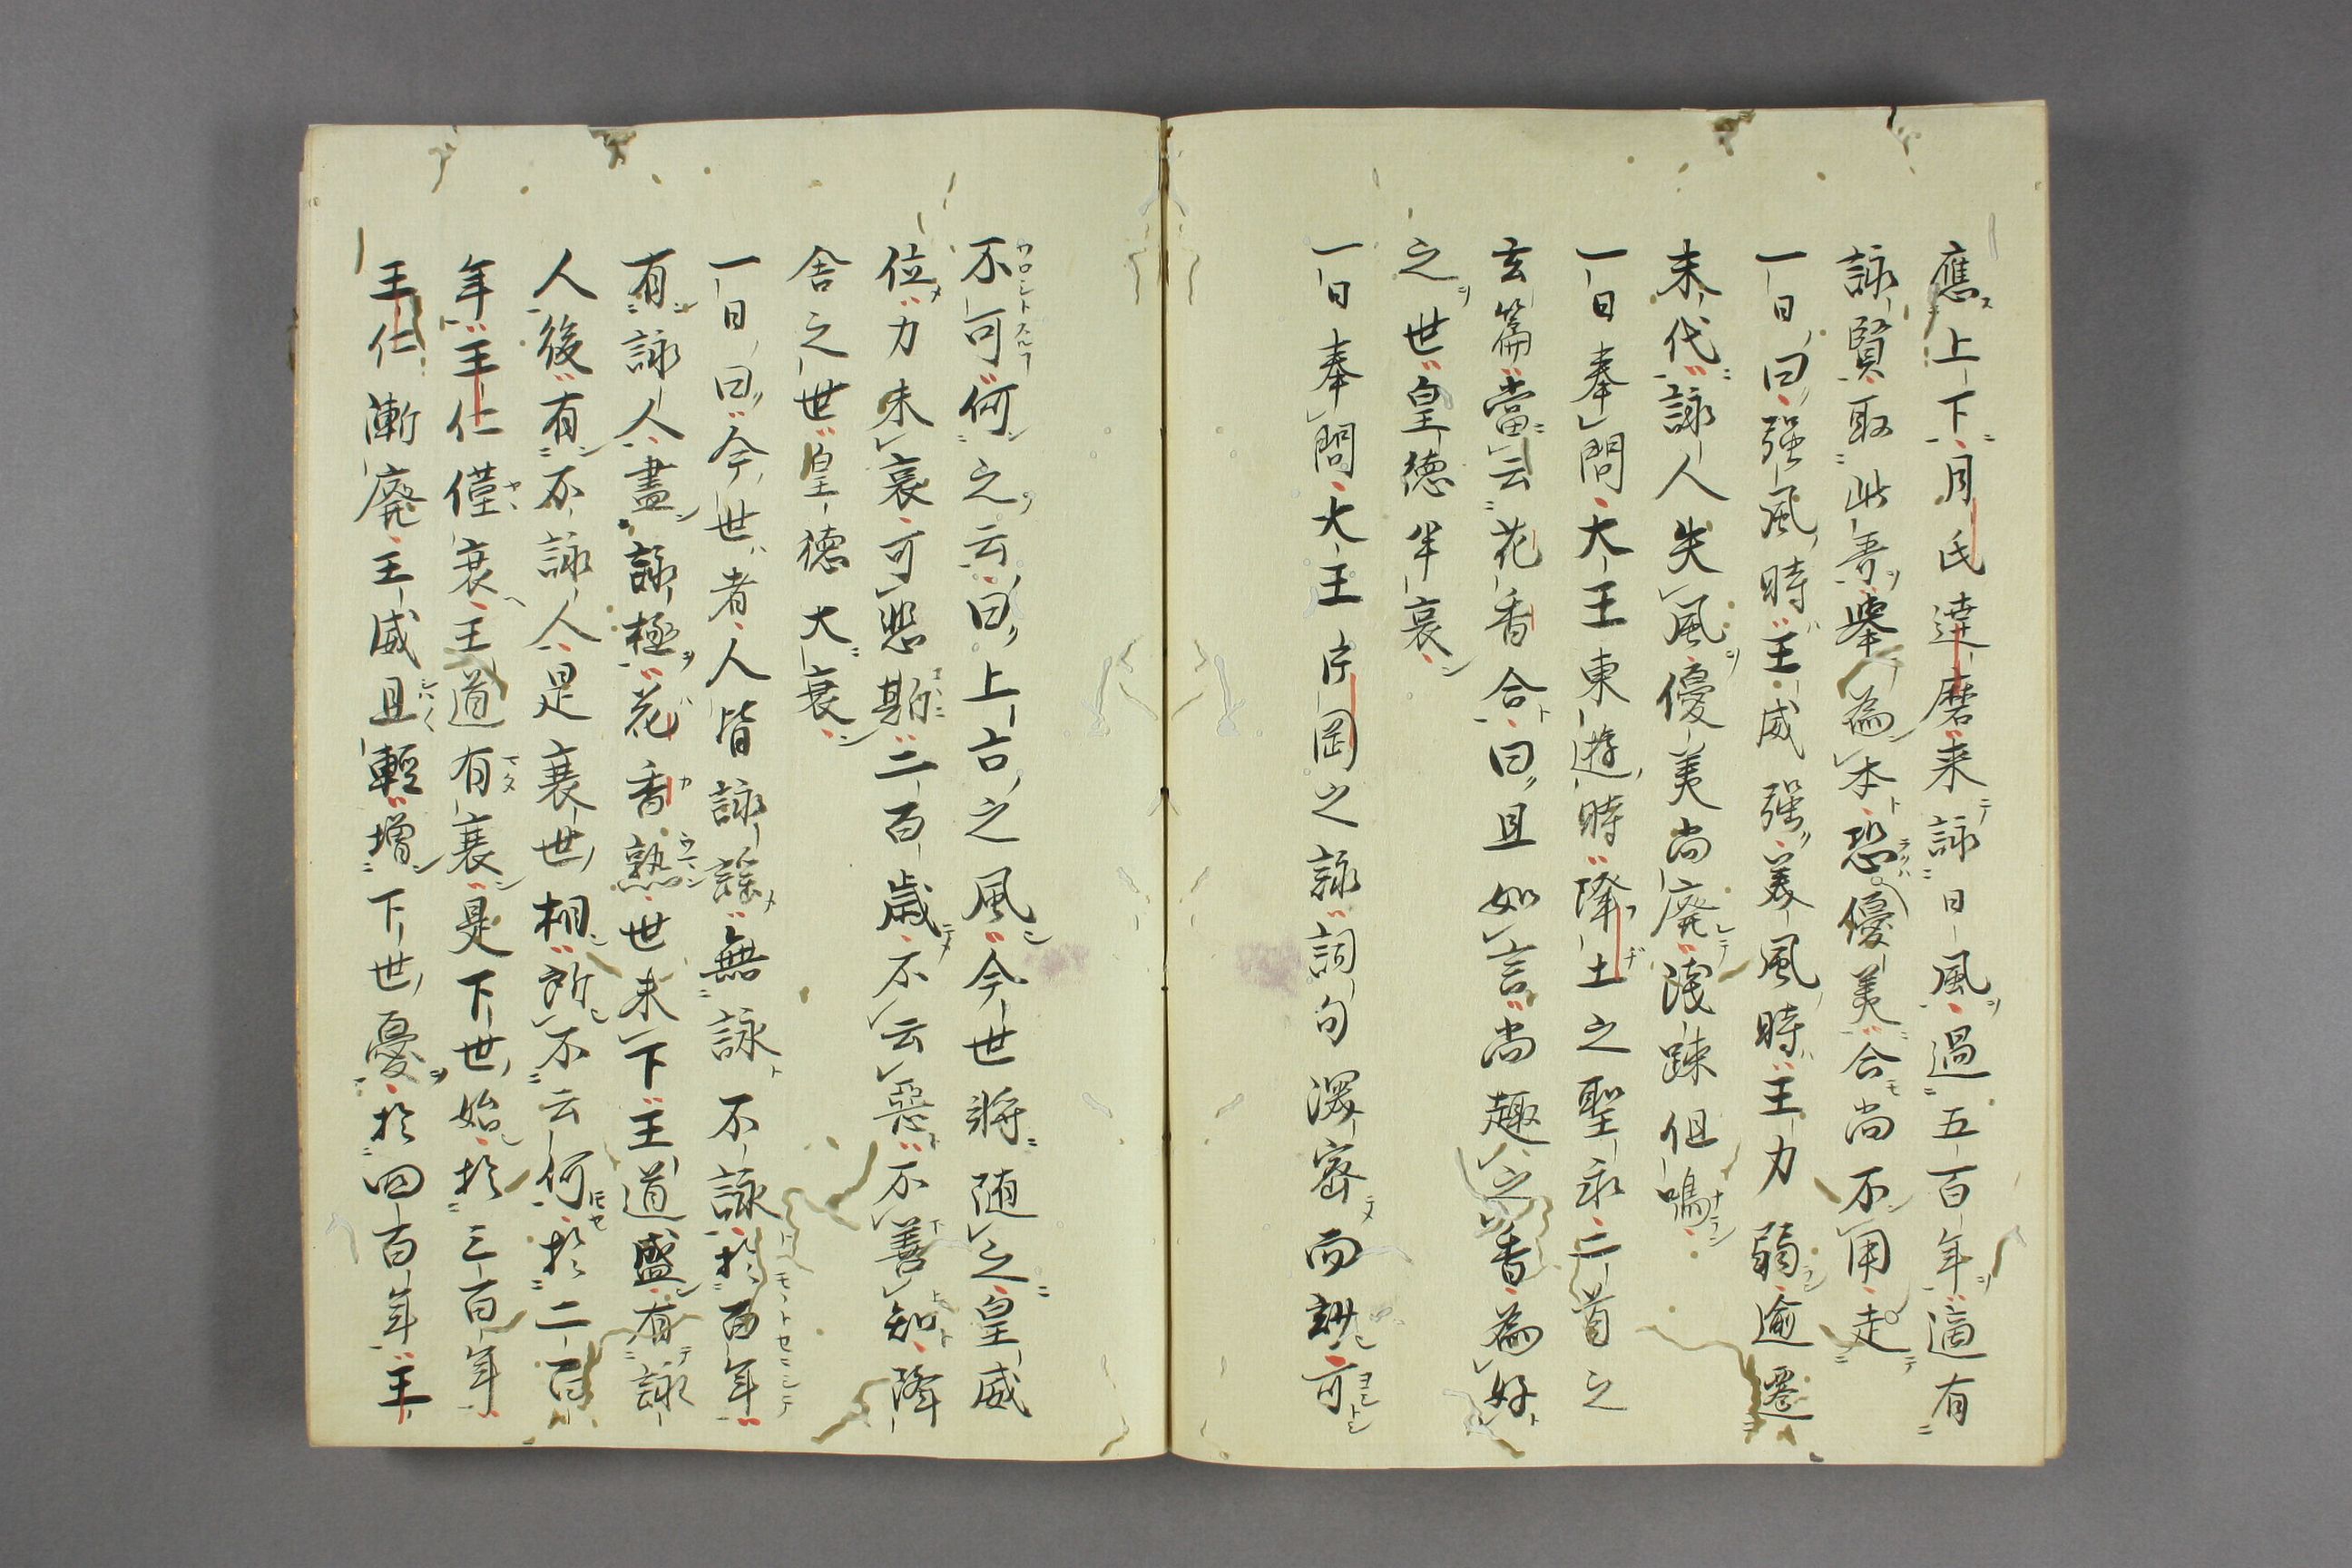 應上下月氏達磨来詠日風過五百年適有
詠賢取此吾舉為本恐優美合尚不用走
一日曰强風時王威强美風時王力弱逾遷
末代詠人失風優美尚廃淺踈但鳴
一日奉問大王東遊時降土之聖永二首之
玄篇當云花香合曰且如言尚趣之香為好
之世皇徳半衰
一日奉問大王片岡之詠詞句深密而訣可
不可何之云曰上古之風今世將随之皇威
位力未衰可悲斯二百歳不云惡不善知降
舍之世皇徳大衰
一日曰今世者人皆詠謡無詠不詠於百年
有詠人盡詠極花香熟世末下王道盛有詠
人後有不詠人是衰世相所不云何於二百
年王仁僅衰王道有衰是下世始於三百年
王仁漸廃王威且輕増下世憂於四百年王